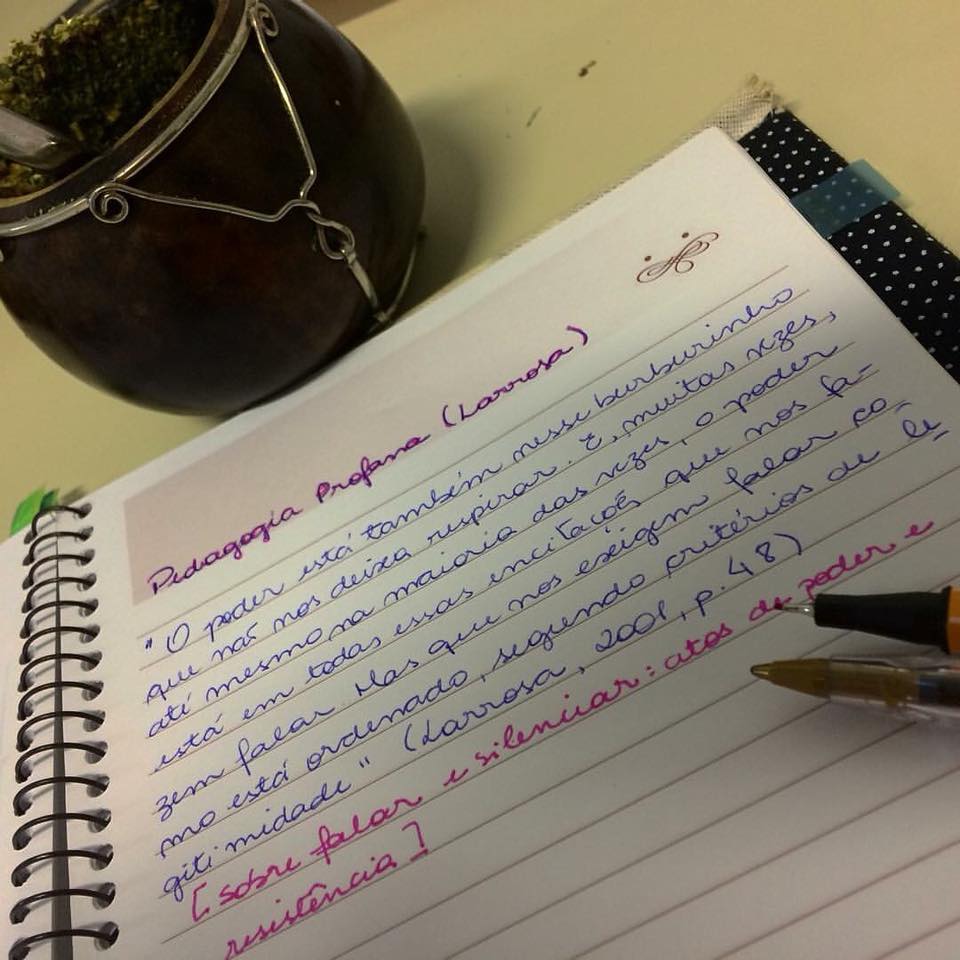 Pedagogia Profana (Larrosa)
"O poder está também nesse burburinho
que não nos deixa respirar. E, muitas vezes,
até mesmo na maioria das vezes, o poder
está em todas essas incitações que nos fa-
zem falar. Mas que nos exigem falar co-
mo está ordenado, segundo critérios de le-
gitimidade" (Larrosa, 2001, p. 48)
[sobre falar e silenciar: atos de poder e
resistência]